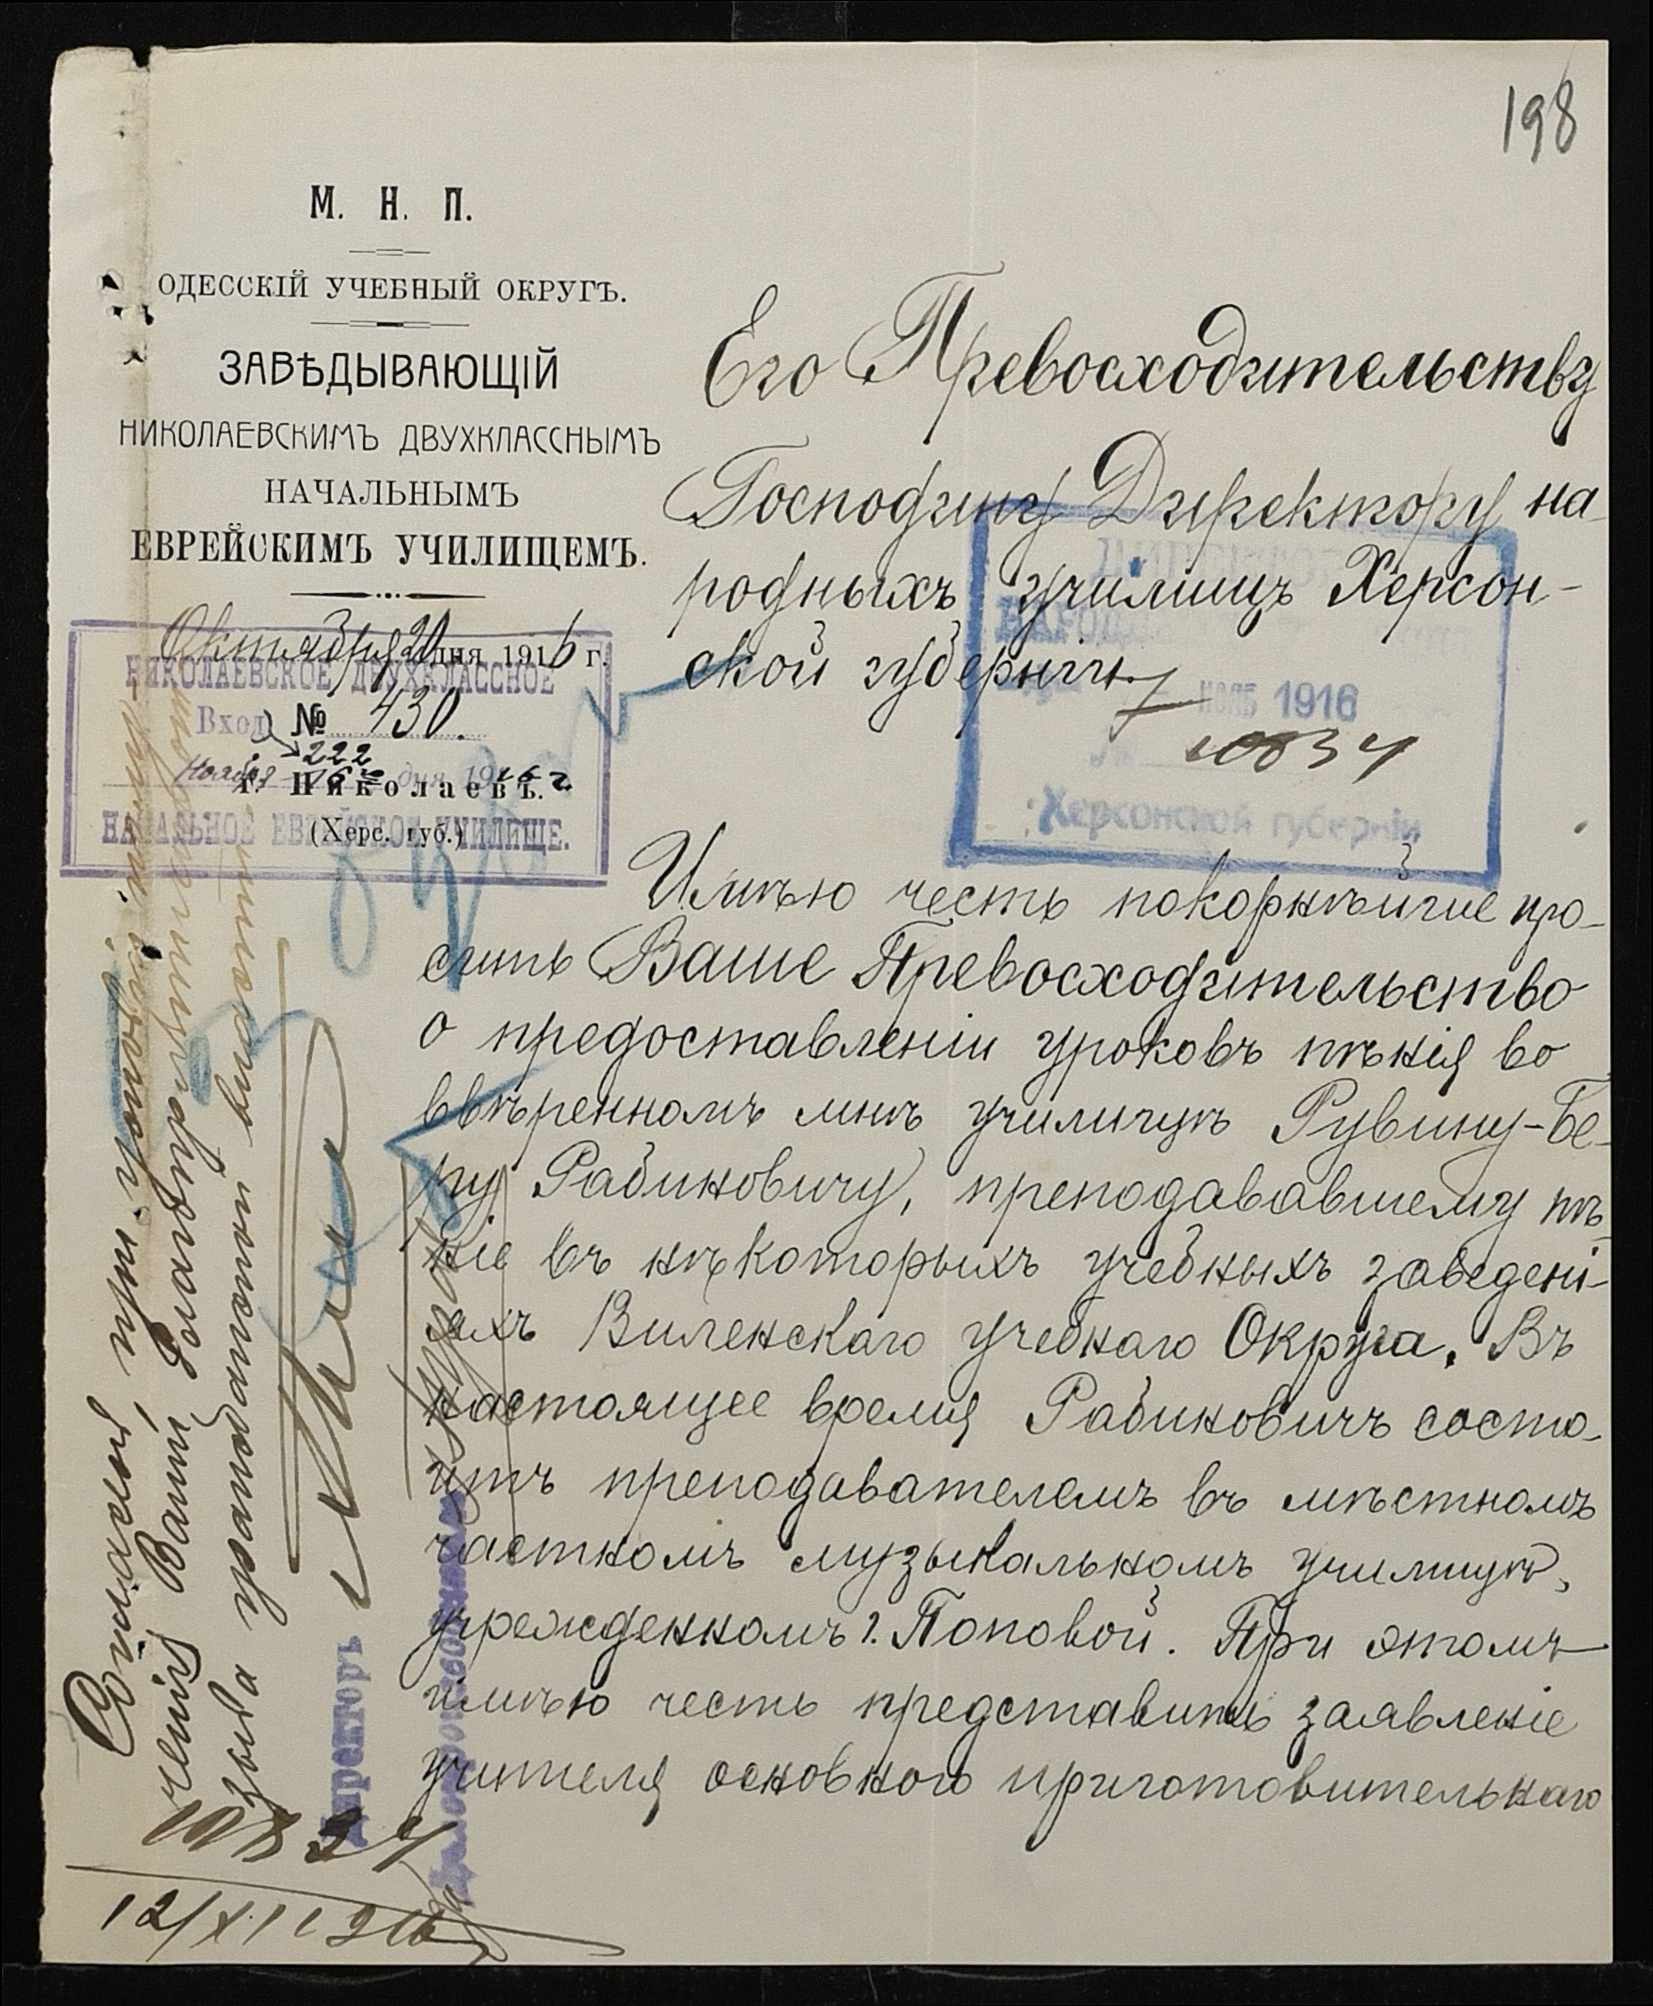 198
М. Н. П.
ОДЕССКІЙ УЧЕБНЫЙ ОКРУГЪ.
ЗАВѢДЫВАЮЩІЙ
НИКОЛАЕВСКИМЪ ДВУХКЛАССНЫМЪ
НАЧАЛЬНЫМЪ
ЕВРЕЙСКИМЪ УЧИЛИЩЕМЪ.
Октября 20 дня 1916 г.
НИКОЛАЕВСКОЕ ДВУХКЛАССНОЕ
Вход. № 430.
222
Ноября 16 дня 1916 г.
г. Николаевъ.
НАЧАЛЬНОЕ ЕВРЕЙСКОЕ УЧИЛИЩЕ.
(Херс. губ.)
Его Превосходительству
Господину Директору на-
родныхъ училищъ Херсон-
ской губерніи.
НОЯБ 1916
№ 10834
Херсонской губерніи
Имѣю честь покорнѣйше про-
сить Ваше Превосходительство
о предоставленіи уроковъ пѣнія во
ввѣренномъ мнѣ училищѣ Рувину-Бе-
ру Рабиновичу, преподававшему пѣ-
ніе въ нѣкоторыхъ учебныхъ заведені-
яхъ Виленскаго учебнаго Округа. Въ
настоящее время Рабиновичъ состо-
итъ преподавателемъ въ мѣстномъ
частномъ музыкальномъ училищѣ,
учрежденномъ г. Поповой. При этомъ
имѣю честь представить заявленіе
учителя основного приготовительнаго
Согласенъ при условіи
ченія Вами,
зыва гражданской власти
Директоръ
Дѣлопроизводитель
10834
12/XI 1916